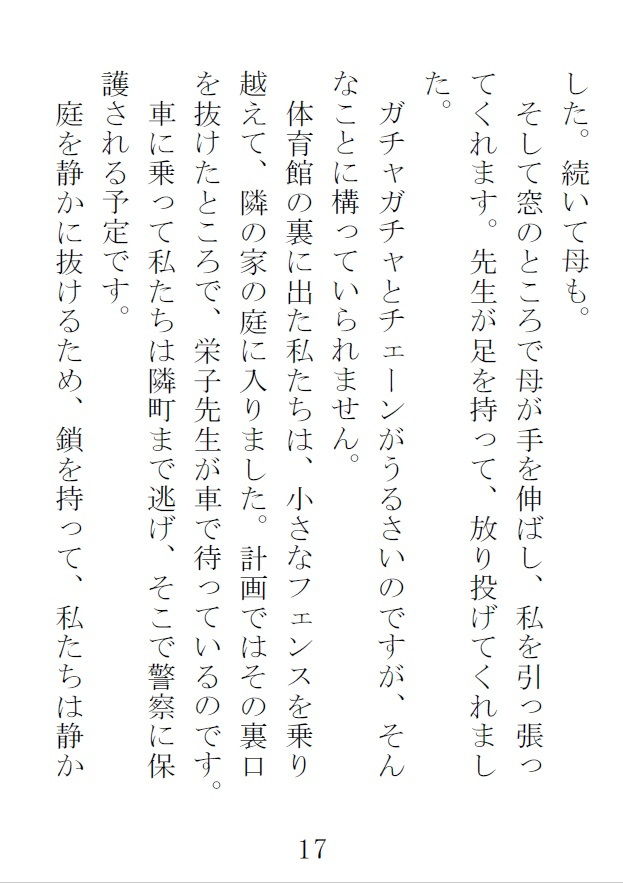 した。続いて母も。
　そして窓のところで母が手を伸ばし、私を引っ張っ
てくれます。先生が足を持って、放り投げてくれまし
た。
　ガチャガチャとチェーンがうるさいのですが、そん
なことに構っていられません。
　体育館の裏に出た私たちは、小さなフェンスを乗り
越えて、隣の家の庭に入りました。計画ではその裏口
を抜けたところで、栄子先生が車で待っているのです。
　車に乗って私たちは隣町まで逃げ、そこで警察に保
護される予定です。
　庭を静かに抜けるため、鎖を持って、私たちは静か
17